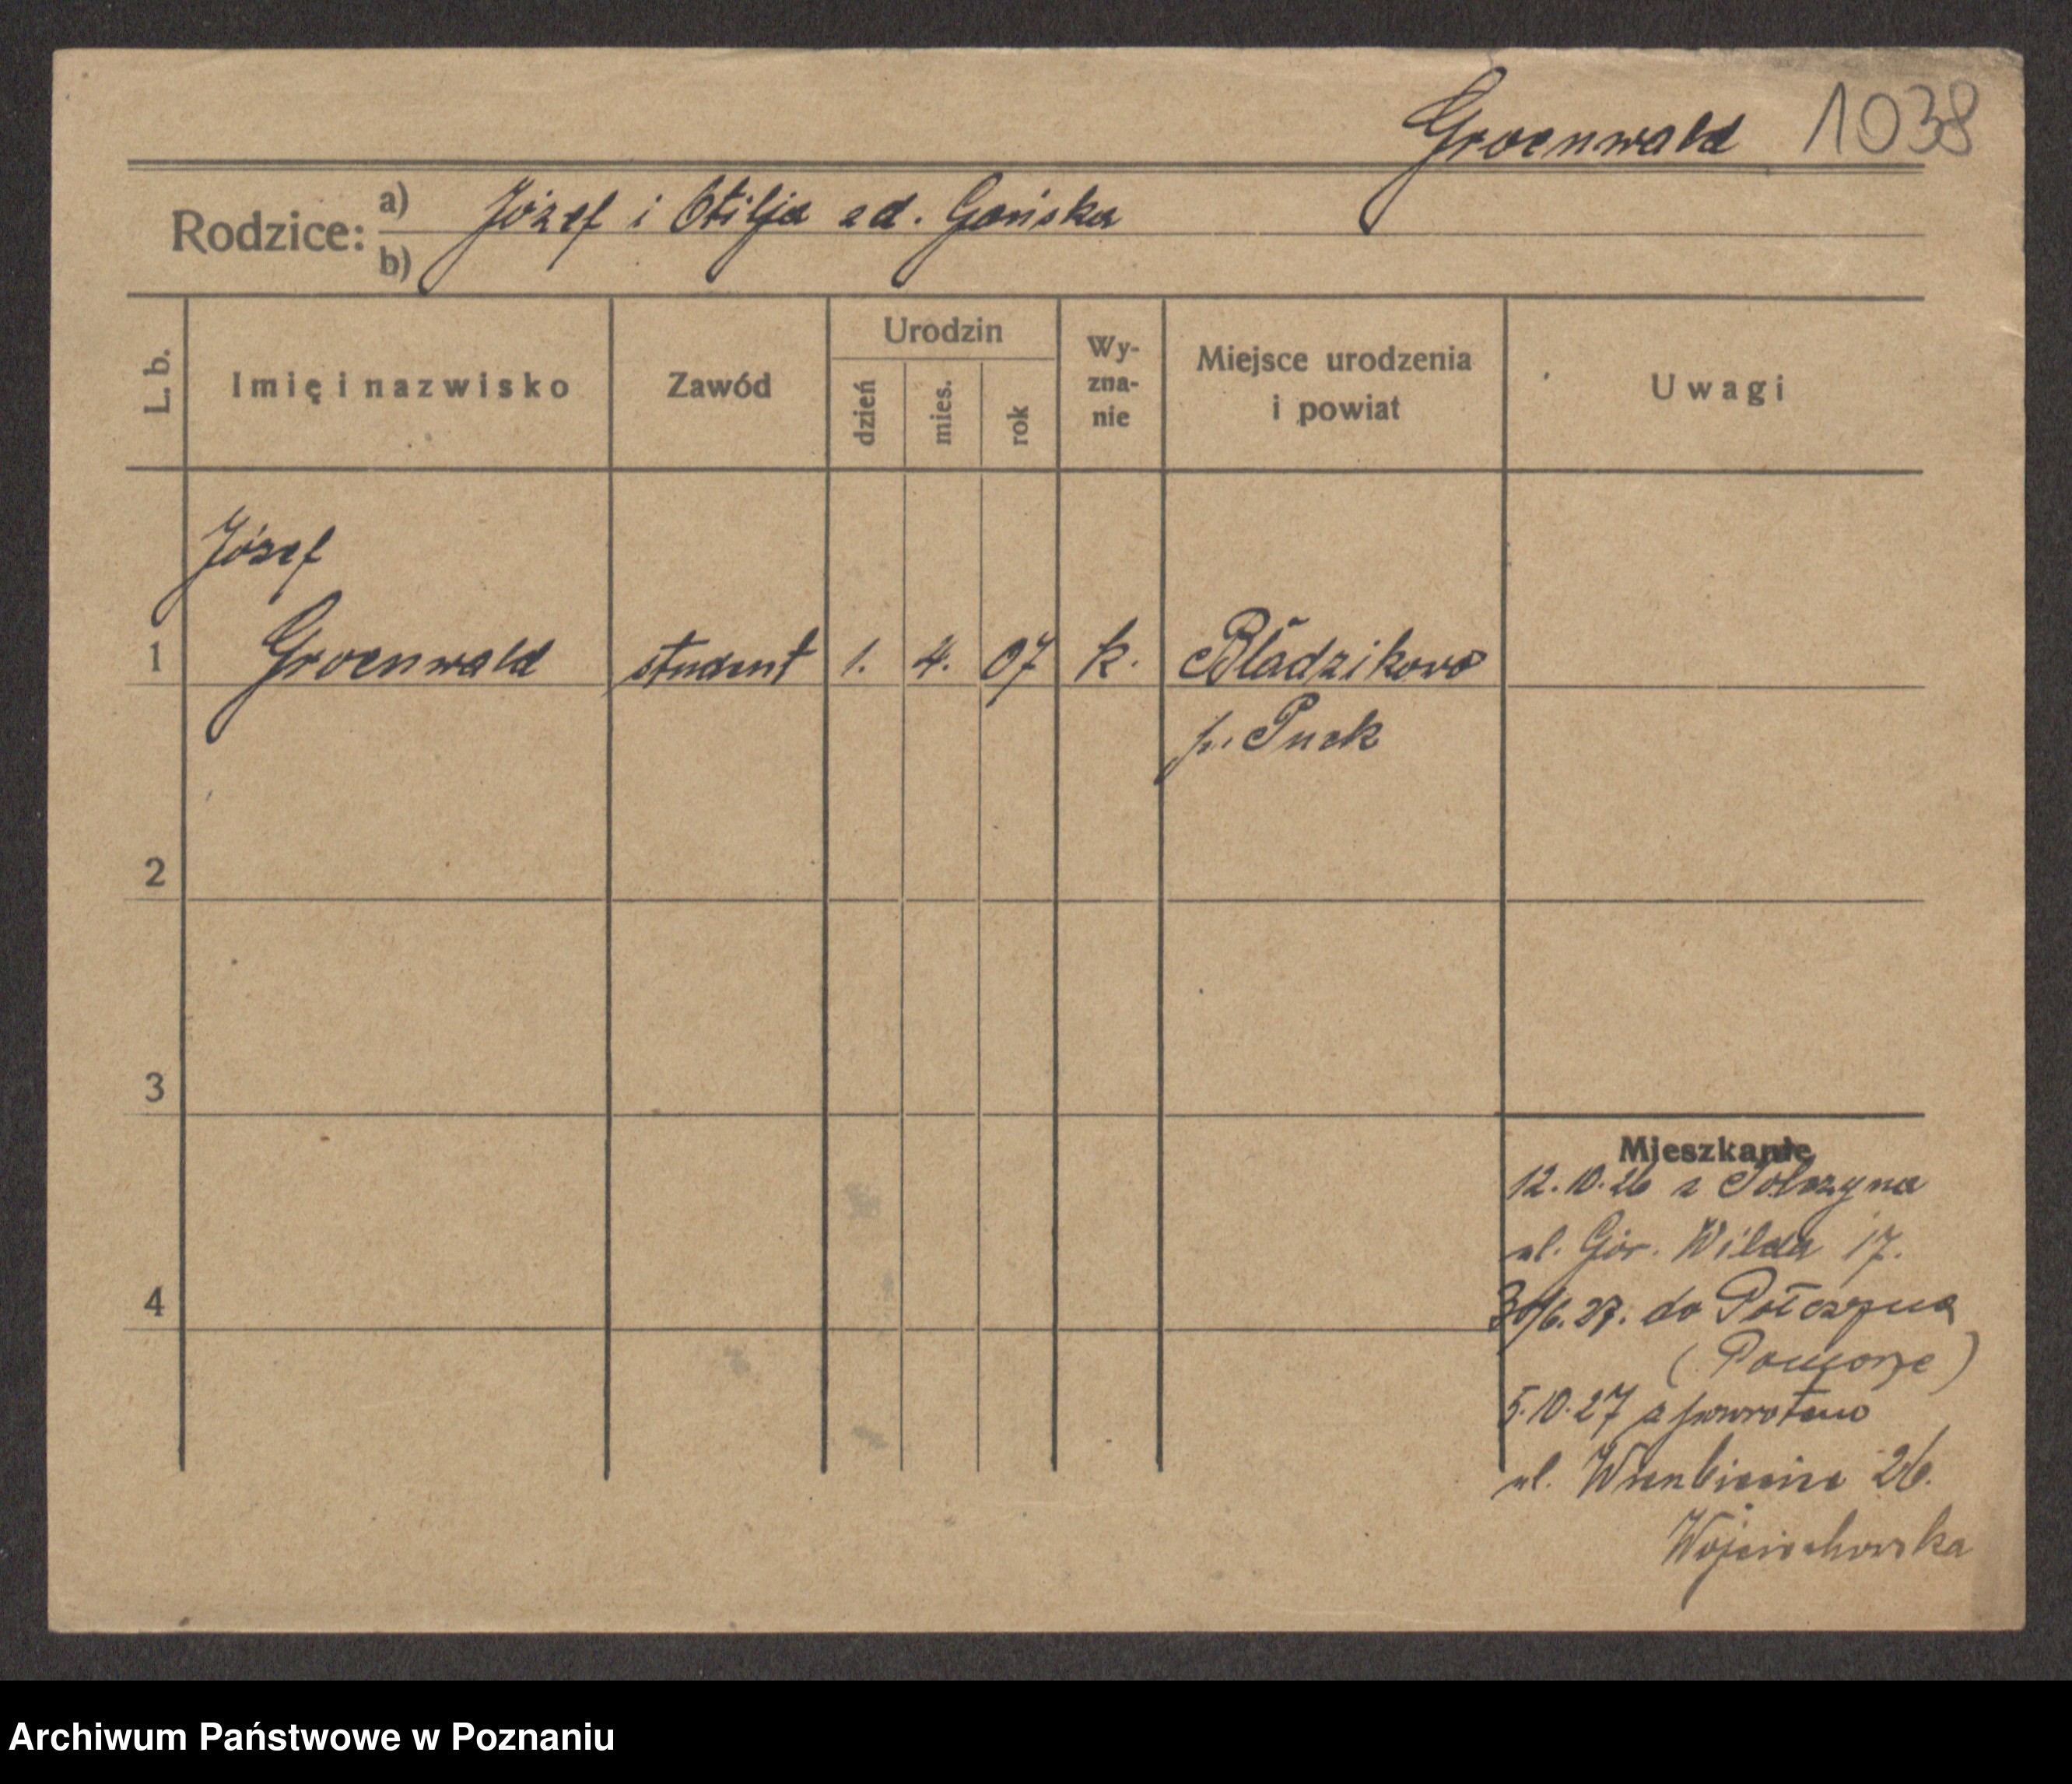 Groenwald 1038
Rodzice: a) Józef i Otilja zd. Gańska
b)
L. b. Imię i nazwisko Zawód Urodzin dzień mies. rok Wy-zna-nie Miejsce urodzenia i powiat Uwagi
Józef
1 Groenwald student 1. 4. 07 k. Bładzikowo
p. Puck
2
3
Mieszkanie
12.10.26 z Połczyna
ul. Gór. Wilda 17.
4 30/6.27. do Połczyna
(Pomorze)
5.10.27 z powrotem
ul. 26.
Wojciechowska
Archiwum Państwowe w Poznaniu